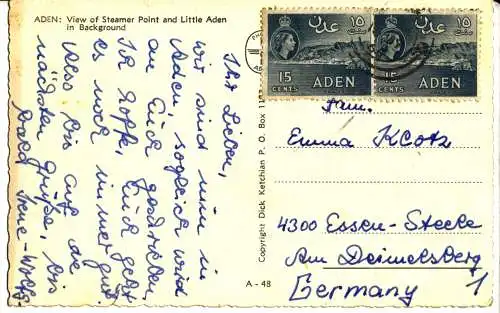 ADEN: View of Steamer Point and Little Aden
in Background
Ihr Lieben,
wir sind nun in
Aden, sogleich wird
an Euch geschrieben.
Ich hoffe, Euch geht
es noch immer gut.
Also bis auf die
nächsten Grüße, bis
bald Irene-
Copyright Dick Ketchian P. O. Box
عدن
١٥
سنت
15
CENTS
ADEN
عدن
١٥
سنت
15
CENTS
ADEN
Fam.
Emma Klotz
4300 Essen-Steele
Am Deimelsberg 1
Germany
A - 48